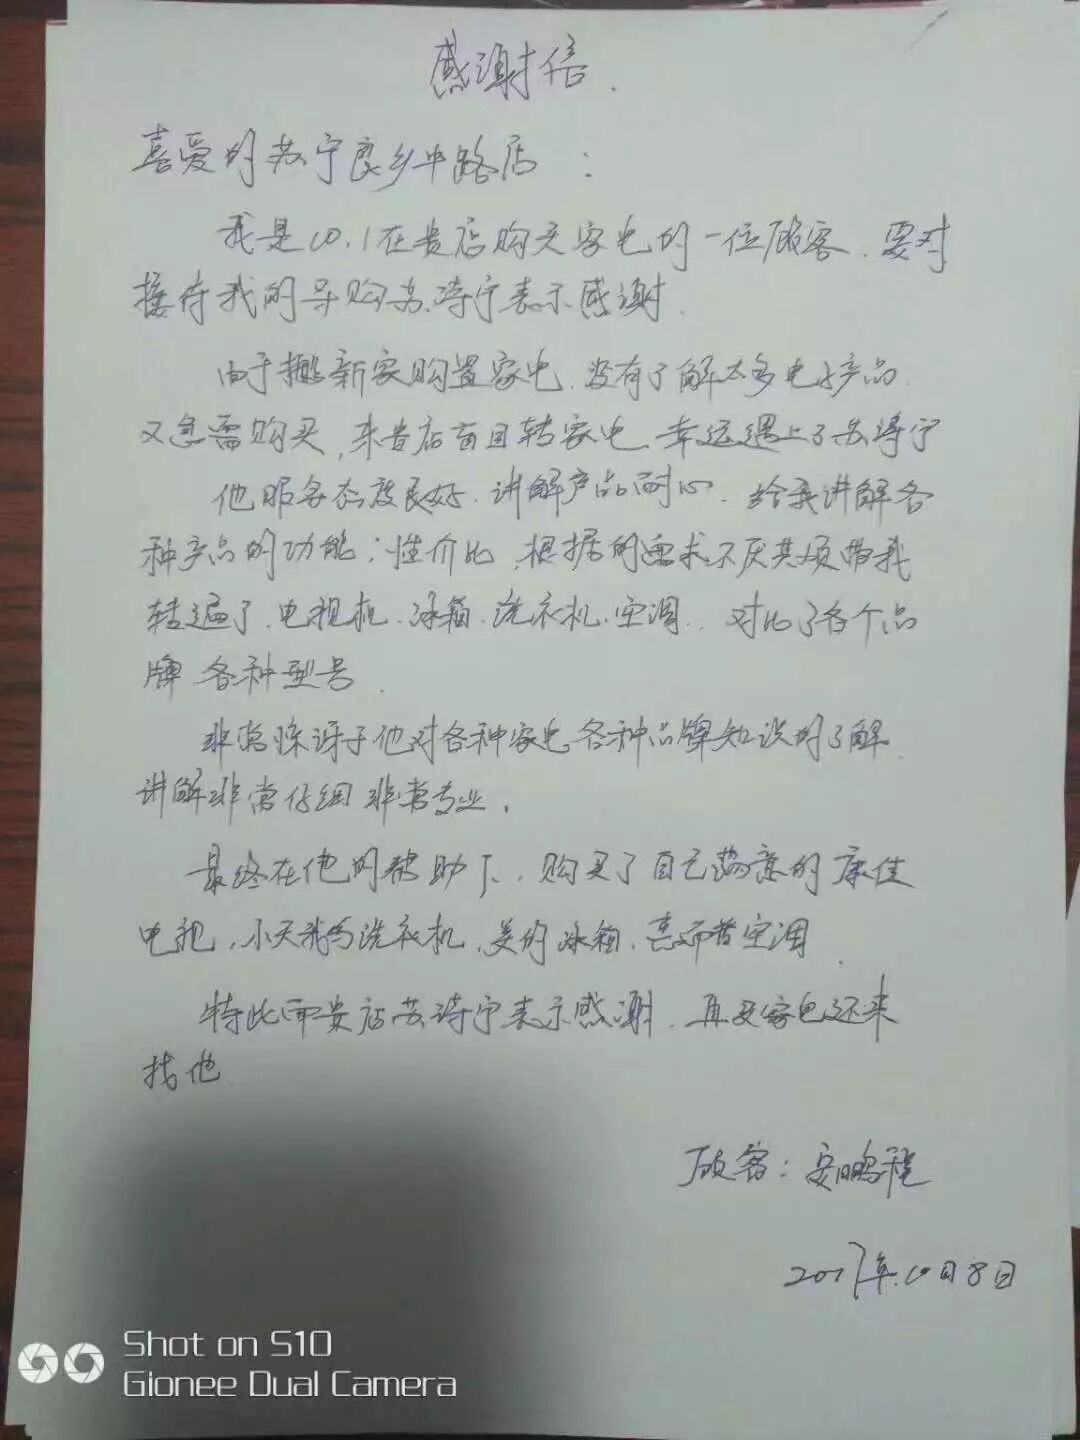 感谢信.
喜爱的苏宁良乡中路店:
我是10.1在贵店购买家电的一位顾客.要对
接待我的导购苏诗宁表示感谢.
由于搬新家购置家电.没有了解太多电子产品.
又急需购买,来贵店盲目转家电.幸运遇上了苏诗宁
他服务态度良好.讲解产品耐心.给我讲解各
种产品的功能;性价比,根据的需求不厌其烦带我
转遍了.电视机.冰箱.洗衣机.空调..对比了各个品
牌 各种型号.
非常惊讶于他对各种家电各种品牌知识的了解.
讲解非常仔细非常专业.
最终在他的帮助下.购买了自己满意的康佳
电视.小天鹅洗衣机.美的冰箱.空调.
特此向贵店苏诗宁表示感谢.再买家电还来
找他
顾客:安鹏程
2017年10月8日
Shot on S10
Gionee Dual Camera